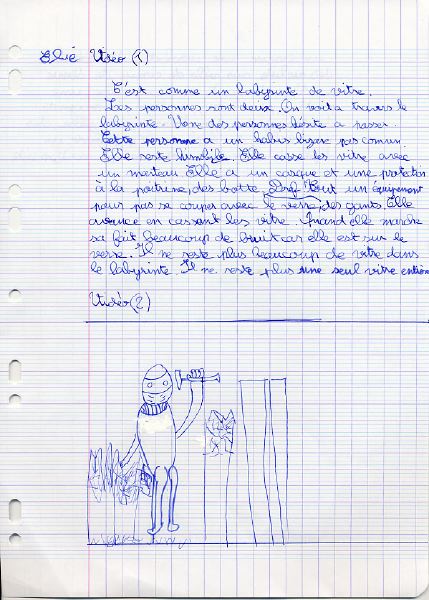 Elié Vidéo (1)
C'est comme un labyrinte de vitre.
Les personnes sont deux. On voit a travers le
labyrinte. Une des personnes hésite a passer.
Cette personne a un habis bizere pas comun
Elle reste humobile. Elle casse les vitre avec
un marteau Elle a un casque et une protection
à la poitrine, des botte. Bref Tout un équipement
pour pas se couper avec le verre, des gants. Elle
avance en cassent les vitre. Quand elle marche
sa fait beaucoup de bruit car elle est sur le
verre. Il ne reste plus beaucoup de vitre dans
le labyrinte. Il ne reste plus une seul vitre entière
Vidéo (2)